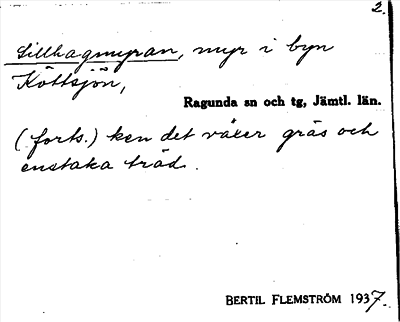 2.
Lillhagmyran, myr i byn
Köttsjön,
Ragunda sn och tg, Jämtl. län.
(forts.) ken det växer gräs och
enstaka träd.
BERTIL FLEMSTRÖM 1937.